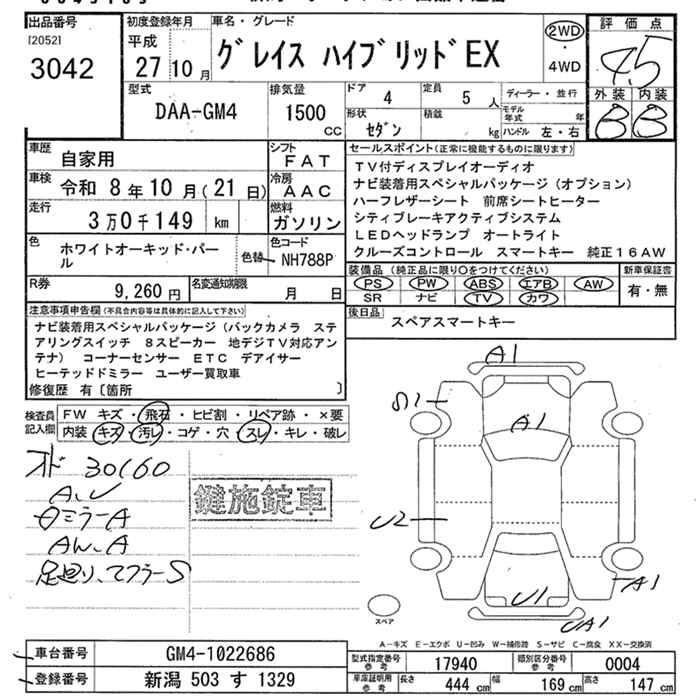 出品番号
[2052]
3042
初度登録年月
平成
27年10月
車名・グレード
グレイス ハイブリッドEX
2WD
・
4WD
評価点
4.5
外装 内装
B B
型式
DAA-GM4
排気量
1500
CC
ドア
4
定員
5人
ディーラー・並行
モデル年式 年
形状
セダン
積載
kg
ハンドル 左・右
車歴
自家用
シフト
FAT
車検
令和 8年10月(21日)
冷房
AAC
走行
3万0千149 km
燃料
ガソリン
色
ホワイトオーキッド・パール
色替
色コード
NH788P
R券
9,260円
名変通知期限
月 日
セールスポイント(正常に機能するものに限ります)
TV付ディスプレイオーディオ
ナビ装着用スペシャルパッケージ(オプション)
ハーフレザーシート 前席シートヒーター
シティブレーキアクティブシステム
LEDヘッドランプ オートライト
クルーズコントロール スマートキー 純正16AW
装備品(純正品に限り○をつけてください)
新車保証書
PS PW ABS エアB AW
SR ナビ TV カワ
有・無
後日品
スペアスマートキー
注意事項申告欄(不具合内容等は具体的に記入して下さい)
ナビ装着用スペシャルパッケージ(バックカメラ ステ
アリングスイッチ 8スピーカー 地デジTV対応アン
テナ) コーナーセンサー ETC デアイサー
ヒーテッドドミラー ユーザー買取車
修復歴 有〔箇所 〕
検査員記入欄
FW キズ・飛石・ヒビ割・リペア跡・×要
内装 キズ・汚レ・コゲ・穴・スレ・キレ・破レ
オド 30160
A、U
ミラーA
AW、A
足廻り、マフラーS
鍵施錠車
A1
A1
U2
U1
A1
UA1
スペア
A-キズ E-エクボ U-凹み W-補修跡 S-サビ C-腐食 XX-交換済
車台番号
GM4-1022686
登録番号
新潟 503 す 1329
型式指定番号
参考
17940
類別区分番号
参考
0004
車庫証明用
参考
長さ
444 cm
幅
169 cm
高さ
147 cm